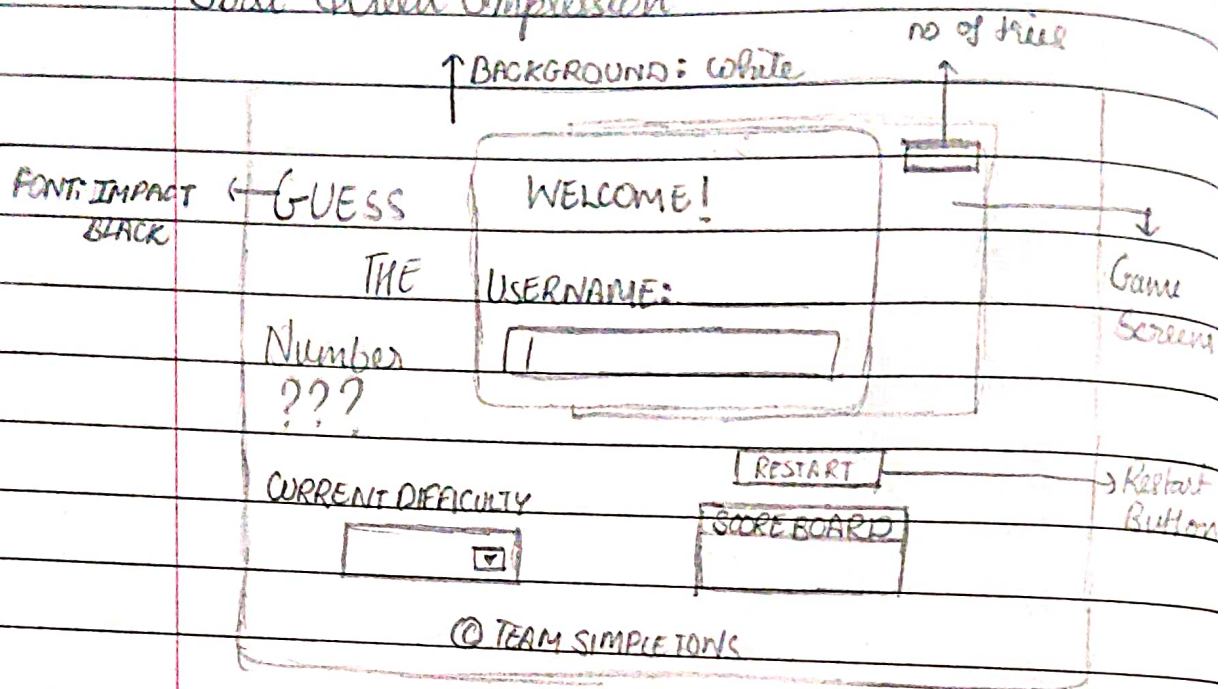 Screen Impression
no of tries
BACKGROUND: White
FONT: IMPACT
BLACK
GUESS
THE
Number
???
WELCOME!
USERNAME:
Game
Screen
RESTART
Restart
Button
CURRENT DIFFICULTY
SCOREBOARD
© TEAM SIMPLETONS